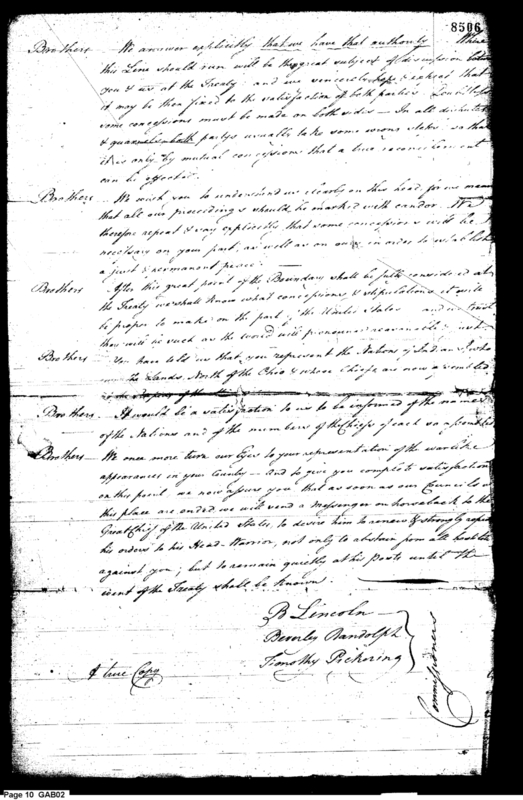 8506
Brothers We answer explicitly that we have that authority Where
this Line should run will be the great subject of discussion
you & us at the Treaty and we sincerely hope & expect that
it may be then fixed to the satisfaction of both parties Doubtless
some concessions must be made on both sides – In all disputes
& quarrels both partys usually take some wrong steps so that
it is only by mutual concessions that a true reconcilement
can be effected
Brothers We wish you to understand us clearly on this head, for we mean
that all our proceedings should be marked with candor. We
therefore repeat & say explicitly that some concessions will be
necessary on your part, as well as on ours in order to establish
a just & permanent peace
Brothers After this great point of the Boundary shall be fully considered at
the Treaty we shall know what concessions & stipulations it will
be proper to make on the part of the United States and we trust
they will be such as the world will pronounce reasonable & just
Brothers You have told us that you represent the Nations of Indians who
own the Lands North of the Ohio & whose Chiefs are now assembled
at the Rapids of the
Brothers It would be a satisfaction to us to be informed of the names
of the Nations and of the numbers of the Chiefs of each so assembled
Brothers We once more turn our Eyes to your representation of the warlike
appearances in your Country – and to give you complete satisfaction
on this point we now assure you that as soon as our Council at
this place are ended we will send a Messenger on horseback to the
Great Chief of the United States, to desire him to renew & strongly repeat
his orders to his Head-Warrior, not only to abstain from all hostilities
against you; but to remain quietly at his Posts until the
event of the Treaty shall be known.
B Lincoln
Beverley Randolph
Timothy Pickering
Commissioners
A true Copy
Page 10 GAB02